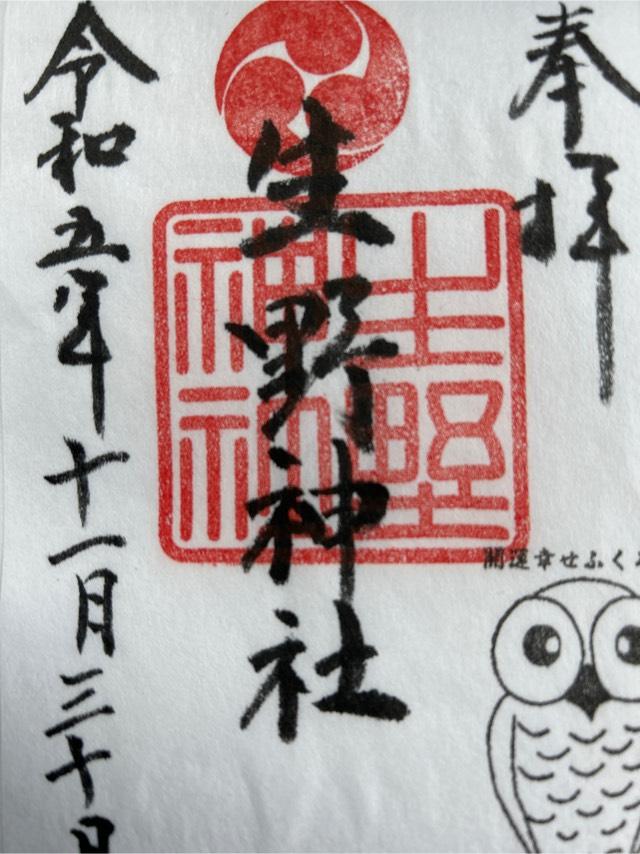 奉拝
生野神社
生野
神社
開運幸せふく
令和五年十一月三十日